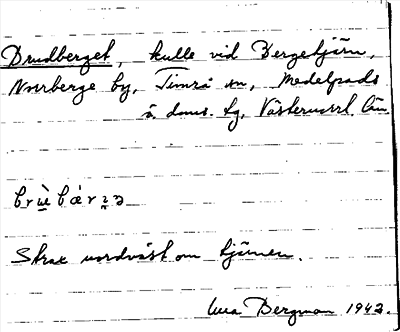 Brudberget, kulle vid Bergetjärn,
Norrberge by, Timrå sn, Medelpads
å doms. tg, Västernorrl. län.
Strax nordväst om tjärnen.
Bergman 1942.